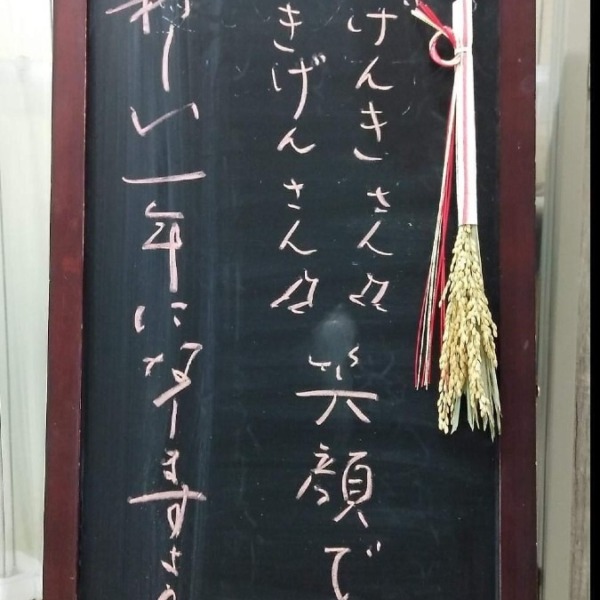 げんきさん
きげんさん
笑顔で
新しい一年になりますよう